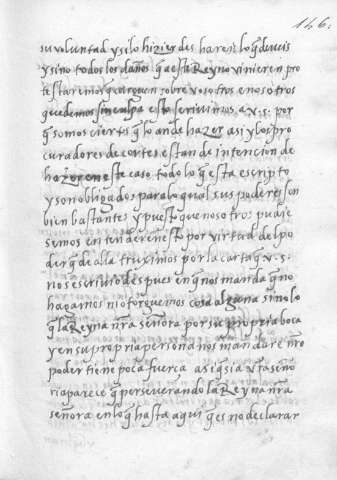 146.
su voluntad y si lo hizierdes hareis lo q̃ deveis
y si no todos los daños q̃ a este Reyno vinieren pro
testaremos q̃ carguen sobre vosotros e nosotros
quedemos sin culpa e sto servimos a v. s. por
q̃ somos ciertos q̃ lo an de hazer asi y los pro
curadores de cortes estan de intencion de
hazer en este caso todo lo q̃ esta escripto
y son obligados para lo qual sus poderes son
bien bastantes y puesto que nosotros pudie
semos entender en esto por virtud del po
der q̃ de alla truximos por la carta q̃ v. s.
nos escrivio despues en q̃ nos manda q̃ no
hagamos ni otorguemos cosa alguna sino lo
q̃ la Reyna nr̃a señora por su propria boca
y en su propria persona nos mandare nr̃o
poder tiene poca fuerca asi q̃ si a vr̃a seño
ria parece q̃ perseverando la Reyna nr̃a
señora en lo q̃ hasta aqui q̃ es no declarar